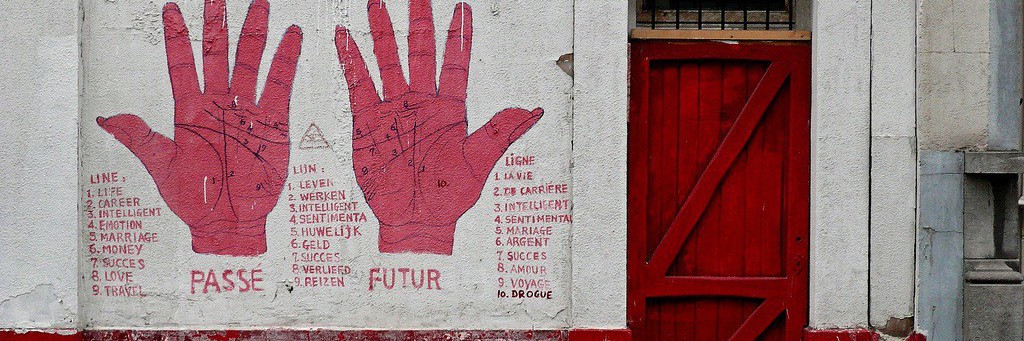 LINE:
1. LIFE
2. CAREER
3. INTELLIGENT
4. EMOTION
5. MARRIAGE
6. MONEY
7. SUCCES
8. LOVE
9. TRAVEL
PASSE
LIJN:
1. LEVEN
2. WERKEN
3. INTELLIGENT
4. SENTIMENTA
5. HUWELIJK
6. GELD
7. SUCCES
8. VERLIEFD
9. REIZEN
FUTUR
LIGNE
1. LA VIE
2. DE CARRIÈRE
3. INTELLIGENT
4. SENTIMENTAL
5. MARIAGE
6. ARGENT
7. SUCCES
8. AMOUR
9. VOYAGE
10. DROGUE